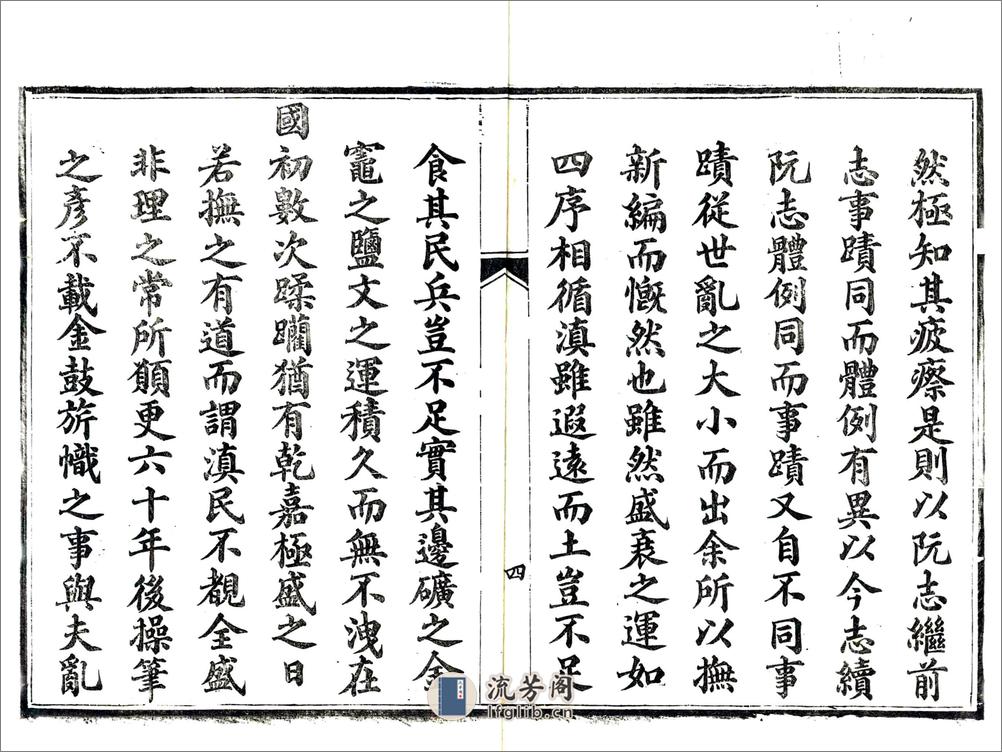 然極知其疲瘵是則以阮志繼前
志事蹟同而體例有異以今志續
阮志體例同而事蹟又自不同事
蹟從世亂之大小而出余所以撫
新編而慨然也雖然盛衰之運如
四序相循滇雖遐遠而土豈不足
四
食其民兵豈不足實其邊礦之金
竈之鹽文之運積久而無不洩在
國初數次蹂躪猶有乾嘉極盛之日
若撫之有道而謂滇民不覩全盛
非理之常所願更六十年後操筆
之彥不載金鼓旂幟之事與夫亂
流芳阁
lfglib.cn